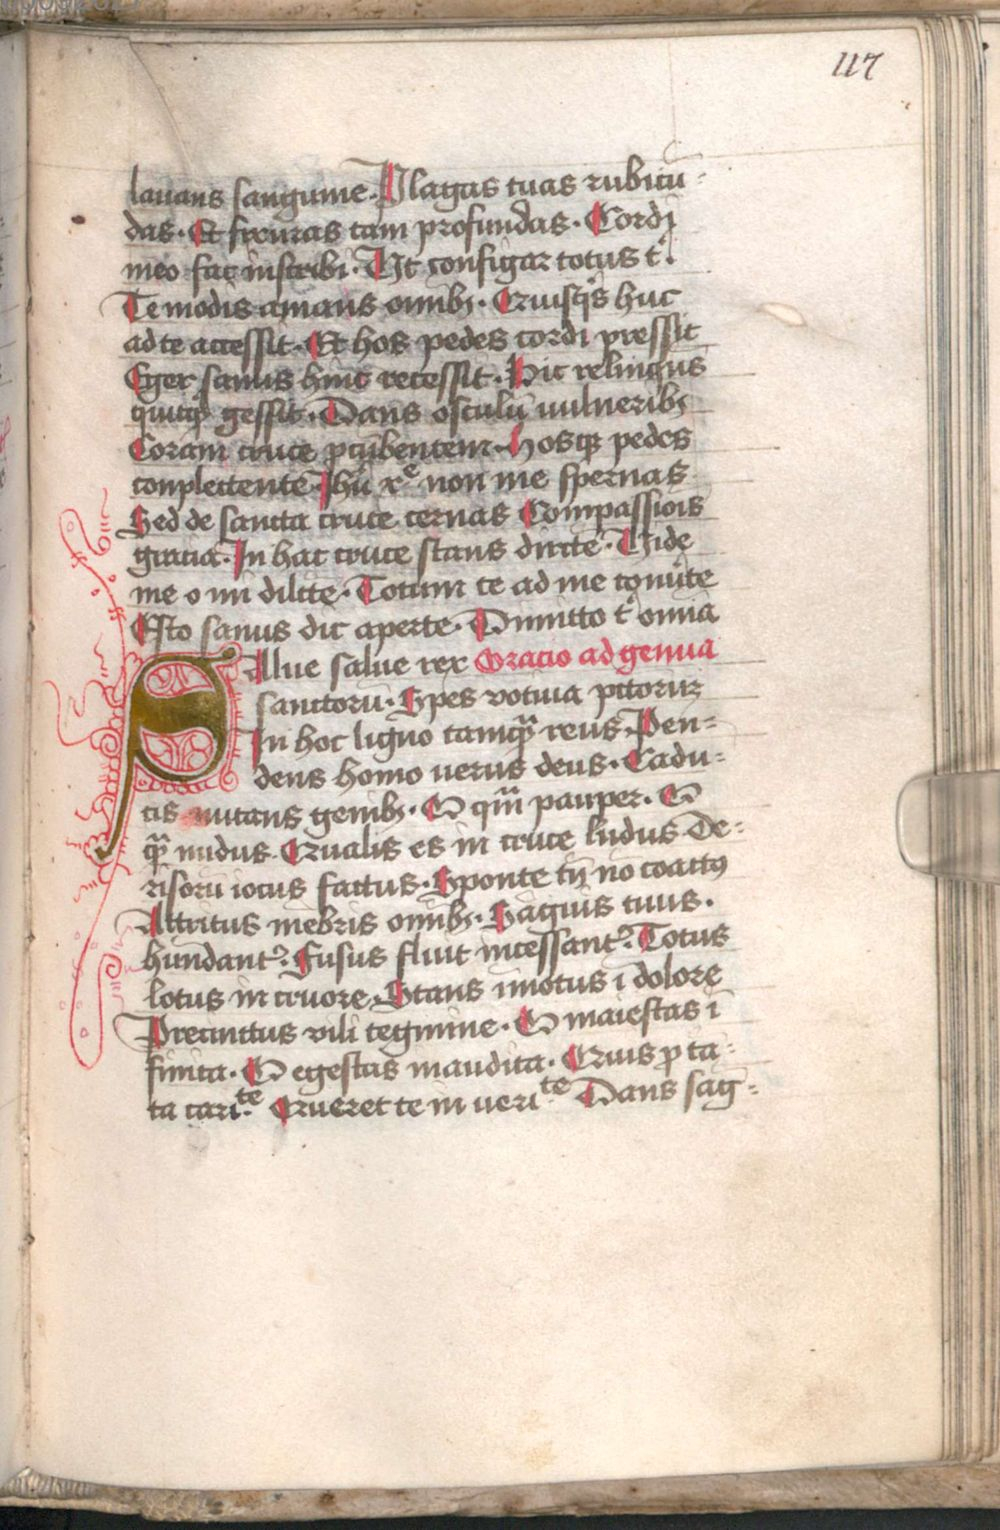 117
lauans sanguine. Plagas tuas rubicū-
das. Et fixuras tam profundas. Cordi
meo fac inscribi. Ut configar totus t͛.
Te modis amans omnibꝫ. Quisq̇s huc
ad te accessit. Et hos pedes cordi pressit
Eger sanus hinc recessit. Hic relinquēs
quitq̄d gessit. Dans osculū uulneribꝫ
Coram cruce ꝓcūbentem. Hosqꝫ pedes
conplectentē Ihū xͤ non me spernas
Sed de sancta cruce cernas Compassiois
gracia. In hac cruce stans dirctē. Uide
me o mi dilcte. Totum te ad me cōnūte
Esto sanus dic aperte. Dimitto t͛ omīa
Salue salue rex Oracio ad genua
sanctorū. Spes votiua pctorum
In hoc ligno tamq̄ᵃ reus. Pen-
dens homo uerus deus. Cadu-
cis nutans genibꝫ. O qm̄ pauper. O
qᵃ̄ nudus. Qualis es in cruce ludus De-
risorū iocus factus. Sponte tn̄ nō coactꝰ
Attritus mēbris omībꝫ. Sāguis tuus.
hundant͛. Fusus fluit incessant͛. Totus
lotus in cruore. Stans īmotus ī dolore
Precinctus vili tegmine. O maiestas ī
finita. O egestas inaudita. Quis ꝓ ta-
ta cari.te Queret te in ueri.te Dans sāg-